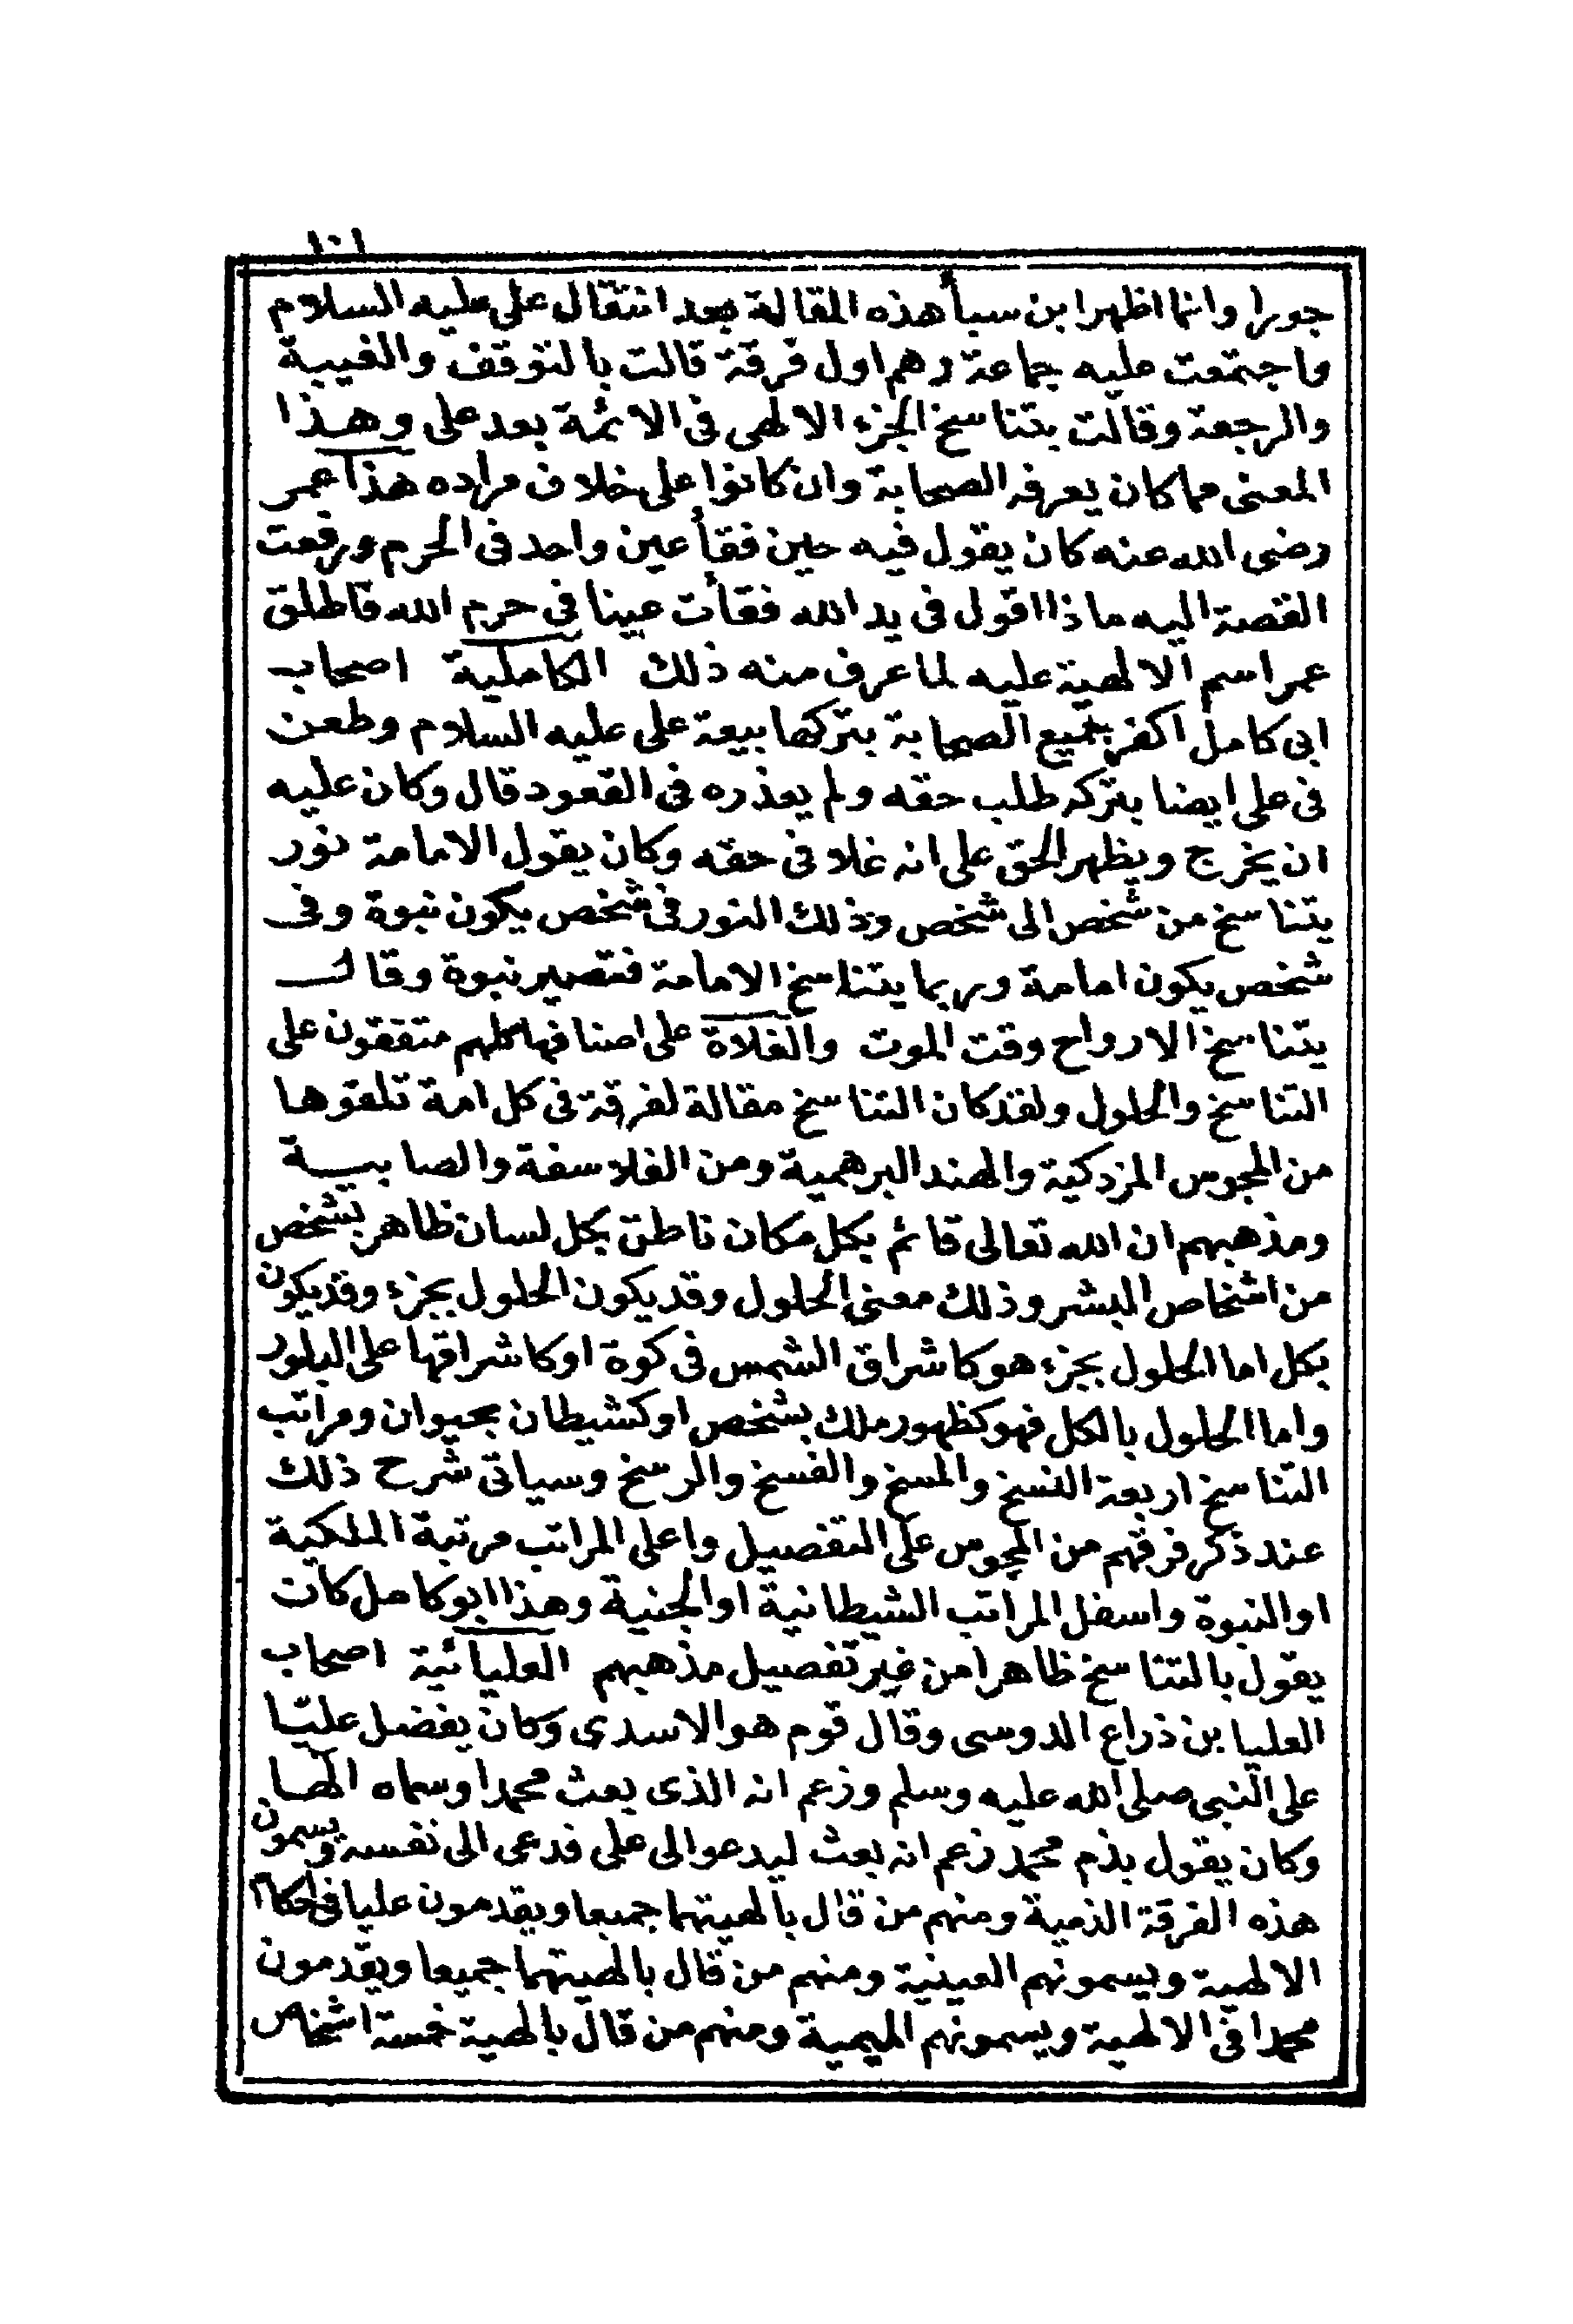 جورا وانما اظهر ابن سبأ هذه المقالة بعد انتقال على عليه السلام
واجتمعت عليه جماعة وهم اول فرقة قالت بالتوقف والغيبة
والرجعة وقالت بتناسخ الجزء الالهى فى الائمة بعد على وهذا
المعنى مما كان يعرفه الصحابة وان كانوا على خلاف مراده هذا عمر
رضى الله عنه كان يقول فيه حين فقأ عين واحد فى الحرم ورفعت
القصة اليه ماذا اقول فى يد الله فقأت عينا فى حرم الله فاطلق
عمر اسم الالهية عليه لما عرف منه ذلك الكاملية اصحاب
ابى كامل اكفر جميع الصحابة بتركها بيعة على عليه السلام وطعن
فى على ايضا بتركه طلب حقه ولم يعذره فى القعود قال وكان عليه
ان يخرج ويظهر الحق على انه غلا فى حقه وكان يقول الامامة نور
يتناسخ من شخص الى شخص وذلك النور فى شخص يكون نبوة وفى
شخص يكون امامة وربما يتناسخ الامامة فتصير نبوة وقال
يتناسخ الارواح وقت الموت والغلاة على اصنافها كلهم متفقون على
التناسخ والحلول ولقد كان التناسخ مقالة لفرقة فى كل امة تلقوها
من المجوس المزدكية والهند البرهمية ومن الفلاسفة والصابية
ومذهبهم ان الله تعالى قائم بكل مكان ناطق بكل لسان ظاهر بشخص
من اشخاص البشر وذلك معنى الحلول وقد يكون الحلول بجزء وقد يكون
بكل اما الحلول بجزء هو كاشراق الشمس فى كوة او كاشراقها على البلور
واما الحلول بالكل فهو كظهور ملك بشخص او كشيطان بحيوان ومراتب
التناسخ اربعة النسخ والمسخ والفسخ والرسخ وسياتى شرح ذلك
عند ذكر فرقهم من المجوس على التفصيل واعلى المراتب مرتبة الملكية
او النبوة واسفل المراتب الشيطانية او الجنية وهذا ابو كامل كان
يقول بالتناسخ ظاهرا من غير تفصيل مذهبهم العليائية اصحاب
العليا بن ذراع الدوسى وقال قوم هو الاسدى وكان يفضل عليّا
على النبى صلى الله عليه وسلم وزعم انه الذى بعث محمدا وسماه الها
وكان يقول بذم محمد زعم انه بعث ليدعو الى على فدعى الى نفسه ويسمون
هذه الفرقة الذمية ومنهم من قال بالهيتهما جميعا ويقدمون عليا فى احكام
الالهية ويسمونهم العينية ومنهم من قال بالهيتهما جميعا ويقدمون
محمدا فى الالهية ويسمونهم الميمية ومنهم من قال بالهية خمسة اشخاص